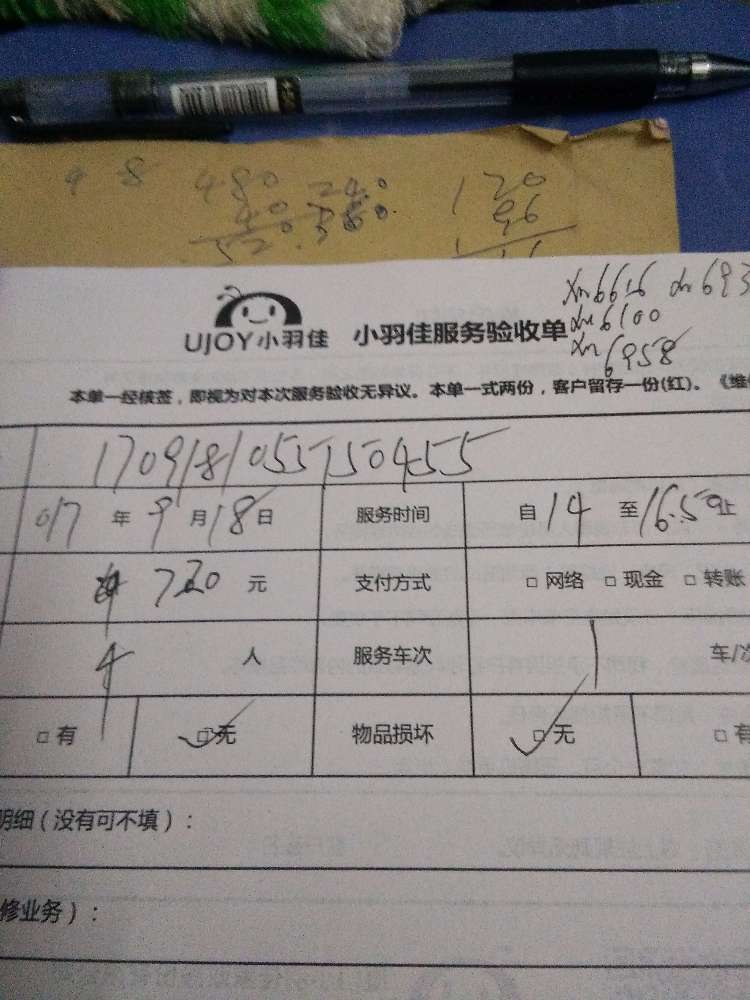 9 8 480 240 120
40 96
520
xn6616 xn693
UJOY小羽佳 小羽佳服务验收单 xn6100
xn6958
本单一经核签，即视为对本次服务验收无异议。本单一式两份，客户留存一份(红)。《维
1709181055150455
017 年 9 月 18 日 服务时间 自 14 至 16.50 止
720 元 支付方式 □ 网络 □ 现金 □ 转账
4 人 服务车次 1 车/次
□ 有 □ 无 物品损坏 □ 无 □ 有
明细（没有可不填）：
修业务）：